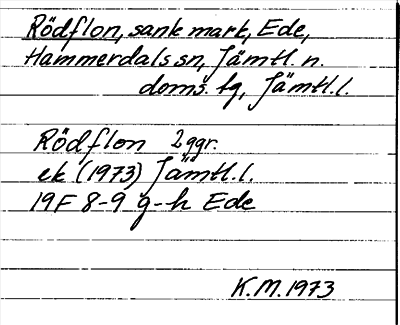 Rödflon, sank mark, Ede,
Hammerdals sn, Jämtl. n.
doms. tg, Jämtl. l.
Rödflon 2 ggr.
ek (1973) Jämtl. l.
19F 8-9 g-h Ede
K.M. 1973